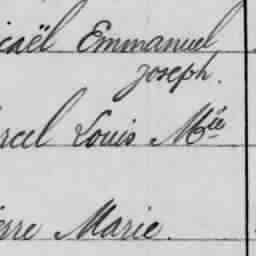 icaël Emmanuel
Joseph.
rcel Louis Mie
erre Marie.